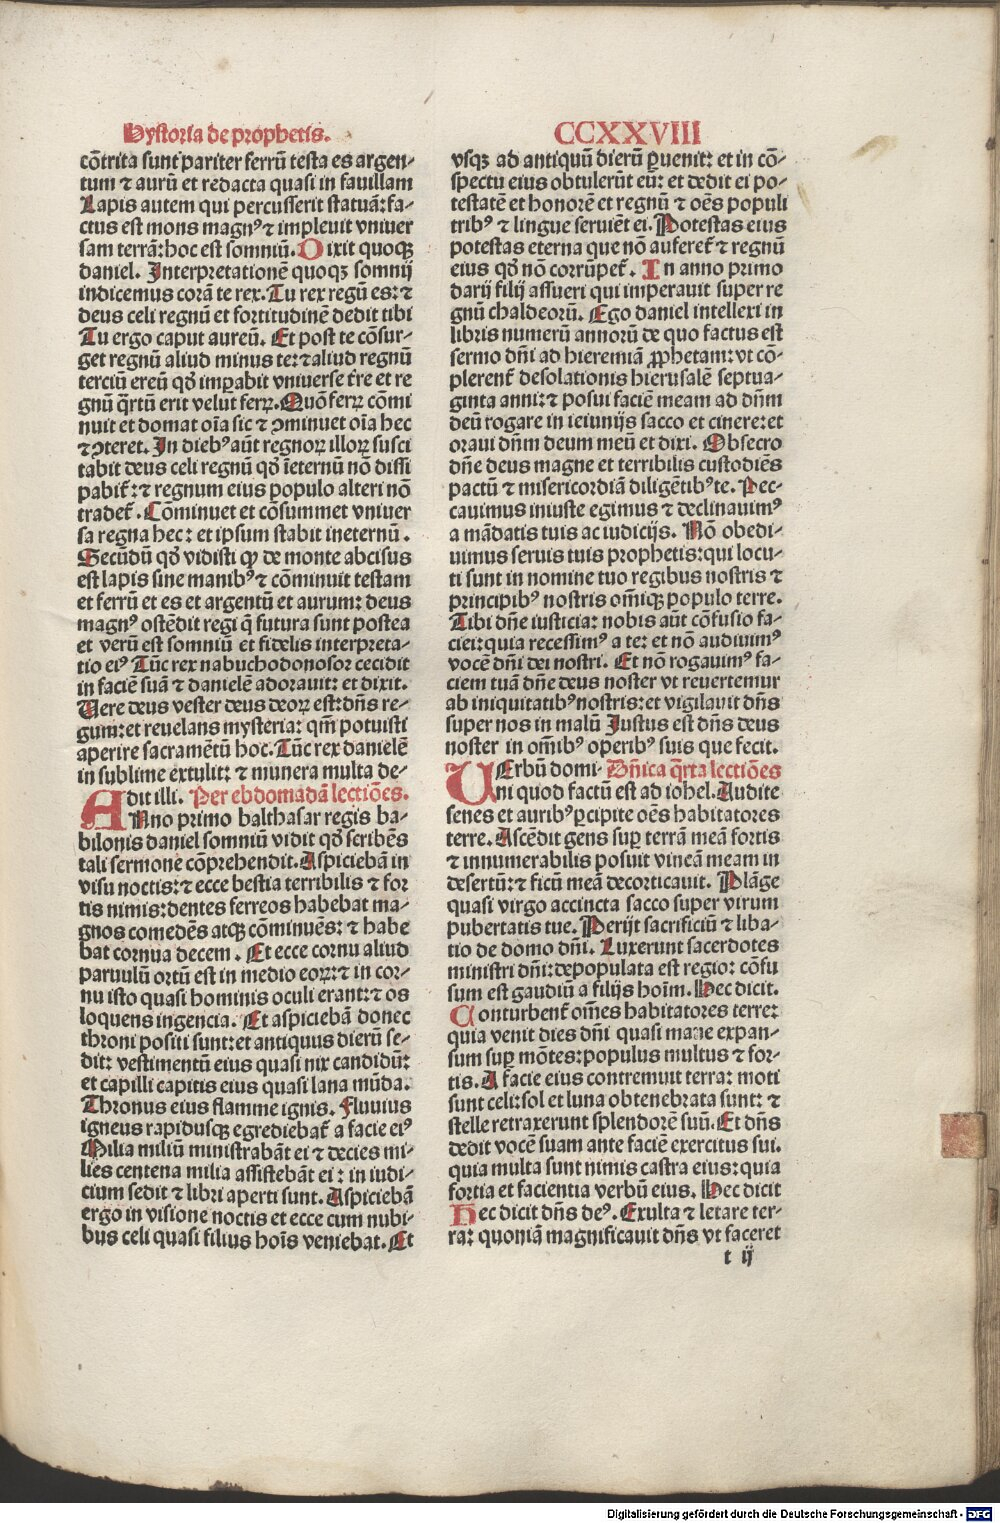 Hystoria de prophetis.
cōtrita sunt pariter ferrū testa es argen-
tum ⁊ aurū et redacta quasi in fauillam
Lapis autem qui percusserit statuā: fa-
ctus est mons magnꝰ ⁊ impleuit vniuer
sam terrā: hoc est somniū. Dixit quoqꝫ
daniel. Interpretationē quoqꝫ somnij
indicemus corā te rex. Tu rex regū es: ⁊
deus celi regnū et fortitudinē dedit tibi
Tu ergo caput aureū. Et post te cōsur-
get regnū aliud minus te: ⁊ aliud regnū
terciū ereū qđ imꝑabit vniuerse t̄re et re
gnū q̄rtū erit velut ferꝝ. Quō ferꝝ cōmi
nuit et domat oīa sic ⁊ ꝯminuet oīa hec
⁊ ꝯteret. In diebꝰ aūt regnoꝝ illoꝝ susci
tabit deus celi regnū qđ īeternū nō dissi
pabit᷑: ⁊ regnum eius populo alteri nō
tradet᷑. Cōminuet et cōsummet vniuer
sa regna hec: et ipsum stabit ineternū.
Secūdū qđ vidisti ꝙ de monte abcisus
est lapis sine manibꝰ ⁊ cōminuit testam
et ferrū et es et argentū et aurum: deus
magnꝰ ostēdit regi q̄ futura sunt postea
et verū est somniū et fidelis interpreta-
tio eiꝰ Tūc rex nabuchodonosor cecidit
in faciē suā ⁊ danielē adorauit: et dixit.
Vere deus vester deus deoꝝ est: dn̄s re-
gum: et reuelans mysteria: qm̄ potuisti
aperire sacramētū hoc. Tūc rex danielē
in sublime extulit: ⁊ munera multa de-
dit illi. Per ebdomadā lectiōes.
ANno primo balthasar regis ba-
bilonis daniel somniū vidit qđ scribēs
tali sermone cōprehendit. Aspiciebā in
visu noctis: ⁊ ecce bestia terribilis ⁊ for
tis nimis: dentes ferreos habebat ma-
gnos comedēs atqꝫ cōminuēs: ⁊ habe
bat cornua decem. Et ecce cornu aliud
paruulū ortū est in medio eoꝝ: ⁊ in cor-
nu isto quasi hominis oculi erant: ⁊ os
loquens ingencia. Et aspiciebā donec
throni positi sunt: et antiquus dierū se-
dit: vestimentū eius quasi nix candidū:
et capilli capitis eius quasi lana mūda.
Thronus eius flamme ignis. Fluuius
igneus rapidusqꝫ egrediebat᷑ a facie eiꝰ
Milia miliū ministrabāt ei ⁊ decies mi-
lies centena milia assistebāt ei: in iudi-
cium sedit ⁊ libri aperti sunt. Aspiciebā
ergo in visione noctis et ecce cum nubi-
bus celi quasi filius hoīs veniebat. Et
CCXXVIII
vsqꝫ ad antiquū dierū ꝑuenit: et in cō-
spectu eius obtulerūt eū: et dedit ei po-
testatē et honorē et regnū ⁊ oēs populi
tribꝰ ⁊ lingue seruiēt ei. Potestas eius
potestas eterna que nō auferet᷑ ⁊ regnū
eius qđ nō corrūpet᷑. In anno primo
darij filij assueri qui imperauit super re
gnū chaldeorū. Ego daniel intellexi in
libris numerū annorū de quo factus est
sermo dn̄i ad hieremiā ꝓphetam: vt cō-
plerent᷑ desolationis hierusalē septua-
ginta anni: ⁊ posui faciē meam ad dn̄m
deū rogare in ieiunijs sacco et cinere: et
oraui dn̄m deum meū et dixi. Obsecro
dn̄e deus magne et terribilis custodiēs
pactū ⁊ misericordiā diligētibꝰ te. Pec-
cauimus iniuste egimus ⁊ declinauimꝰ
a mādatis tuis ac iudicijs. Nō obedi-
uimus seruis tuis prophetis: qui locu-
ti sunt in nomine tuo regibus nostris ⁊
principibꝰ nostris om̄iqꝫ populo terre.
Tibi dn̄e iusticia: nobis aūt cōfusio fa-
ciei: quia recessimꝰ a te: et nō audiuimꝰ
vocē dn̄i dei nostri. Et nō rogauimꝰ fa-
ciem tuā dn̄e deus noster vt reuertemur
ab iniquitatibꝰ nostris: et vigilauit dn̄s
super nos in malū Justus est dn̄s deus
noster in om̄ibꝰ operibꝰ suis que fecit.
VErbū domi- Dn̄ica q̄rta lectiōes
ni quod factū est ad iohel. Audite
senes et auribꝰ ꝑcipite oēs habitatores
terre. Ascēdit gens suꝑ terrā meā fortis
⁊ innumerabilis posuit vineā meam in
desertū: ⁊ ficū meā decorticauit. Plāge
quasi virgo accincta sacco super virum
pubertatis tue. Perijt sacrificiū ⁊ liba-
tio de domo dn̄i. Luxerunt sacerdotes
ministri dn̄i: depopulata est regio: cōfu
sum est gaudiū a filijs hoīm. Hec dicit.
Conturbent᷑ om̄es habitatores terre:
quia venit dies dn̄i quasi mane expan-
sum suꝑ mōtes: populus multus ⁊ for-
tis. A facie eius contremuit terra: moti
sunt celi: sol et luna obtenebrata sunt: ⁊
stelle retraxerunt splendorē suū. Et dn̄s
dedit vocē suam ante faciē exercitus sui.
quia multa sunt nimis castra eius: quia
fortia et facientia verbū eius. Hec dicit
Hec dicit dn̄s deꝰ. Exulta ⁊ letare ter-
ra: quoniā magnificauit dn̄s vt faceret
t ij
Digitalisierung gefördert durch die Deutsche Forschungsgemeinschaft - DFG